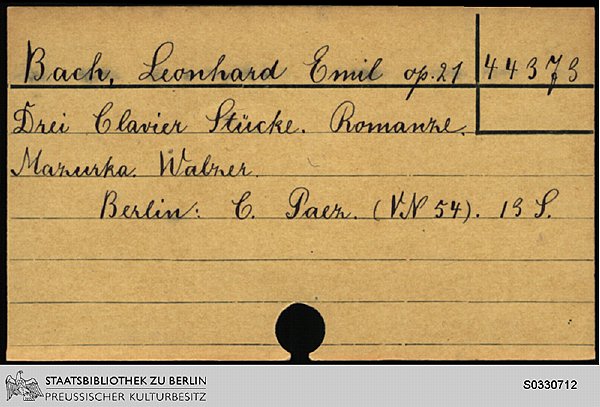 Bach, Leonhard Emil op. 21 44373
Drei Clavier Stücke. Romanze.
Mazurka. Walzer.
Berlin: C. Paez. (VN 54). 13 S.
STAATSBIBLIOTHEK ZU BERLIN
PREUSSISCHER KULTURBESITZ
S0330712